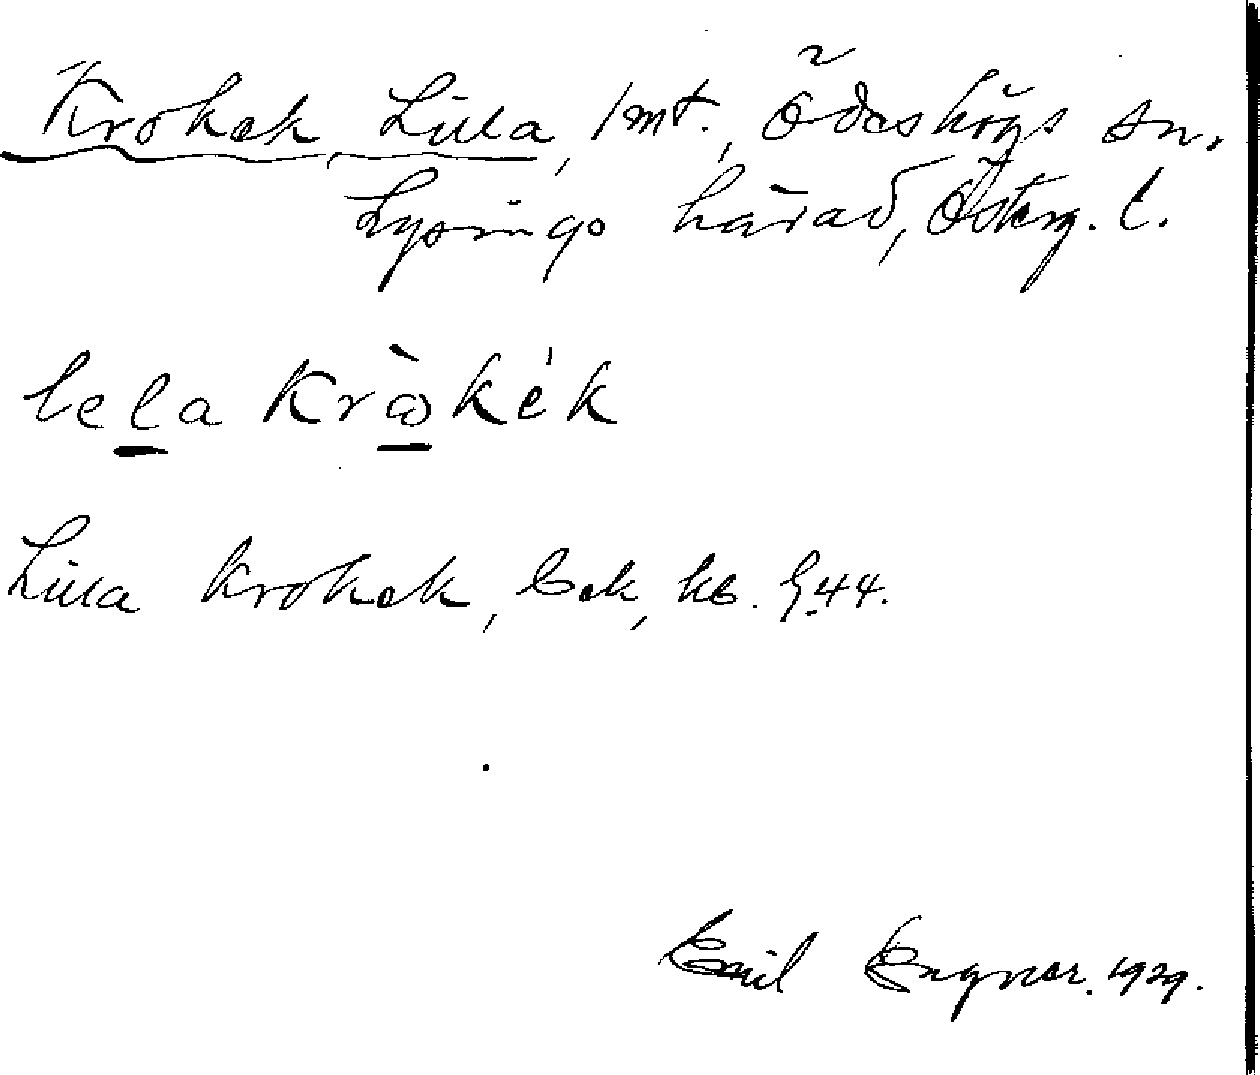 Krokek, Lilla, 1 mt., Ödeshögs sn.
Lysings härad, Österg. l.
lela Krὼkėk
Lilla Krokek, Eek, kb. § 44.
Emil Engner. 1929.